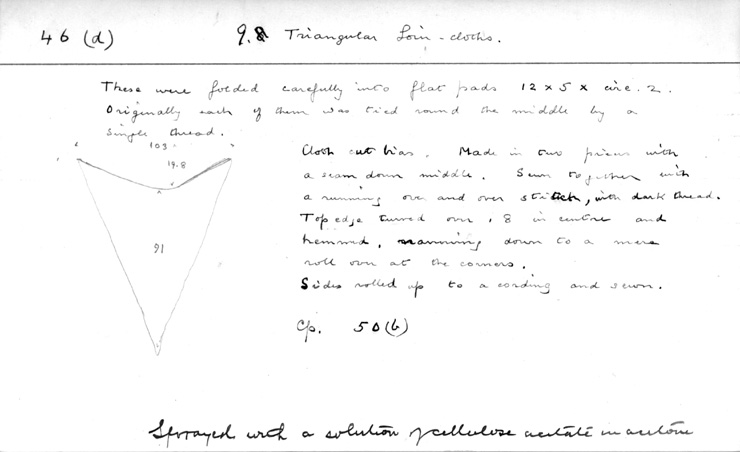 46 (d)
9. Triangular Loin-cloths.
These were folded carefully into flat pads 12 x 5 x circ. 2.
Originally each of them was tied round the middle by a
single thread.
103
19.8
91
Cloth cut bias. Made in two pieces with
a seam down middle. Sewn together with
a running over and over stitch, with dark thread.
Top edge turned over .8 in centre and
hemmed, narrowing down to a mere
roll over at the corners.
Sides rolled up to a cording and sewn.
Cp. 50(b)
Sprayed with a solution of cellulose acetate in acetone